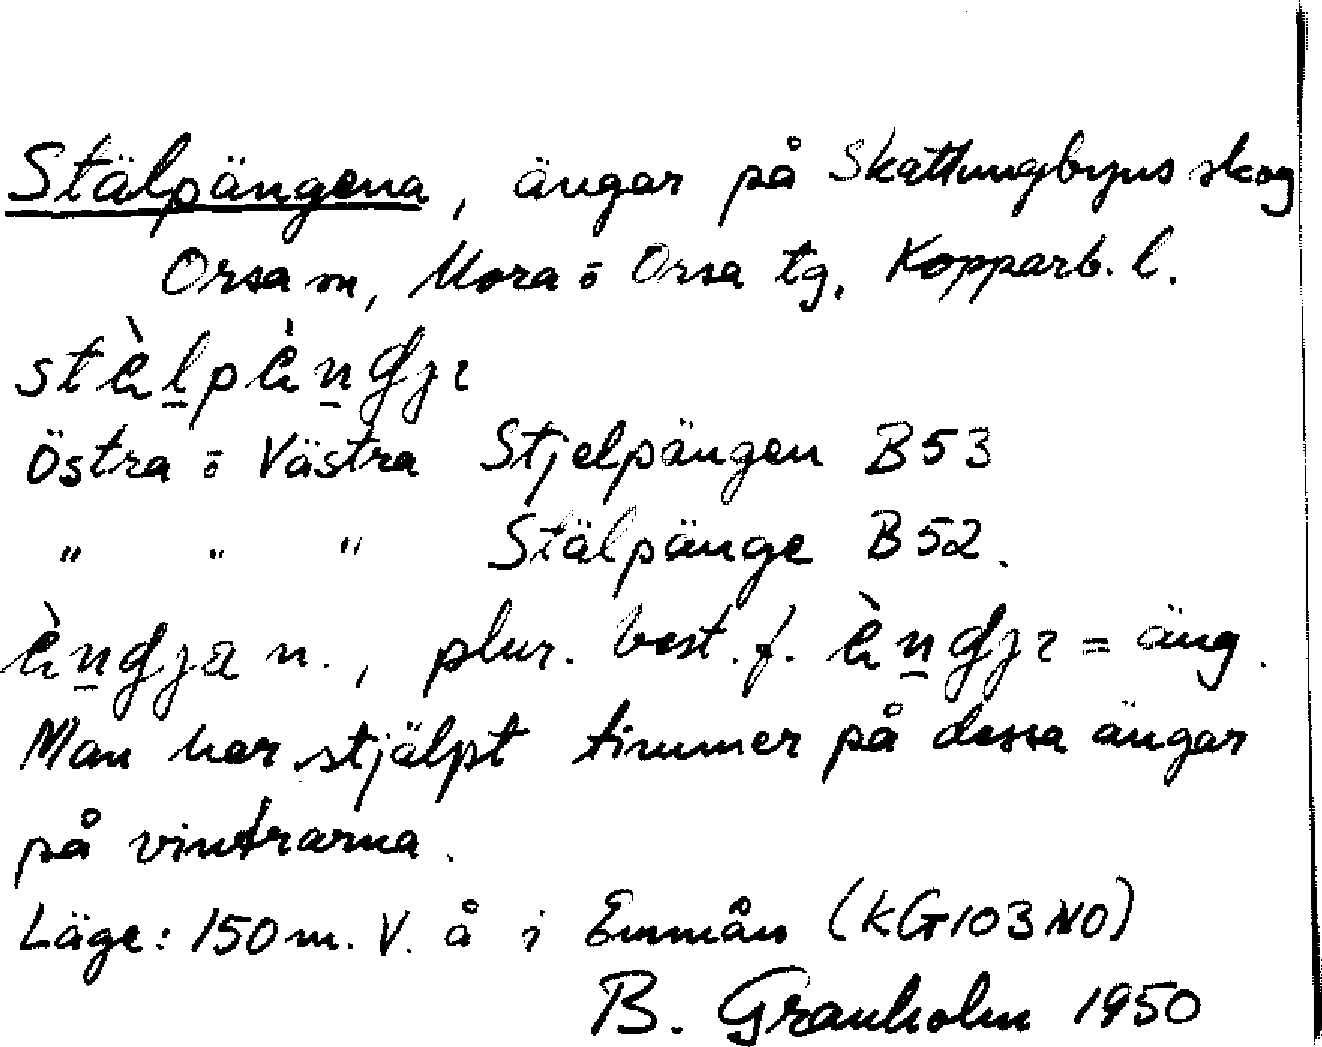 Stälpängena, ängar på Skattungbyns skog
Orsa sn, Mora o Orsa tg, Kopparb. l.
stæ̀l̠pæ̀n̠gjɿ
Östra o Västra Stjelpängen B53
" " " Stälpänge B52.
æ̀n̠gja n., plur. best. f. æ̀n̠gjɿ = äng.
Man har stjälpt timmer på dessa ängar
på vintrarna.
Läge: 150 m. V. å i Emmån (KG103NO)
B. Granholm 1950